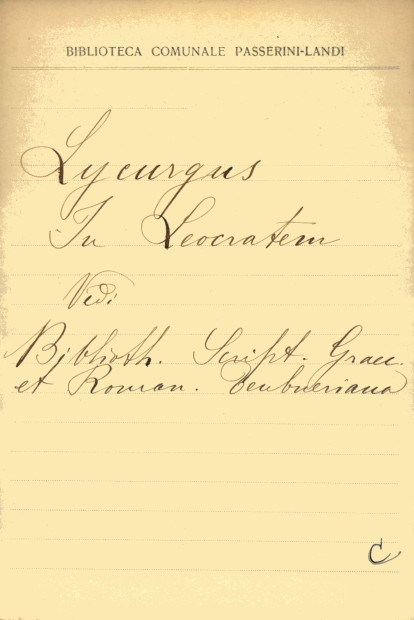 BIBLIOTECA COMUNALE PASSERINI-LANDI
Lycurgus
In Leocratem
Vedi
Biblioth. Script. Graec.
et Roman. Teubneriana
C